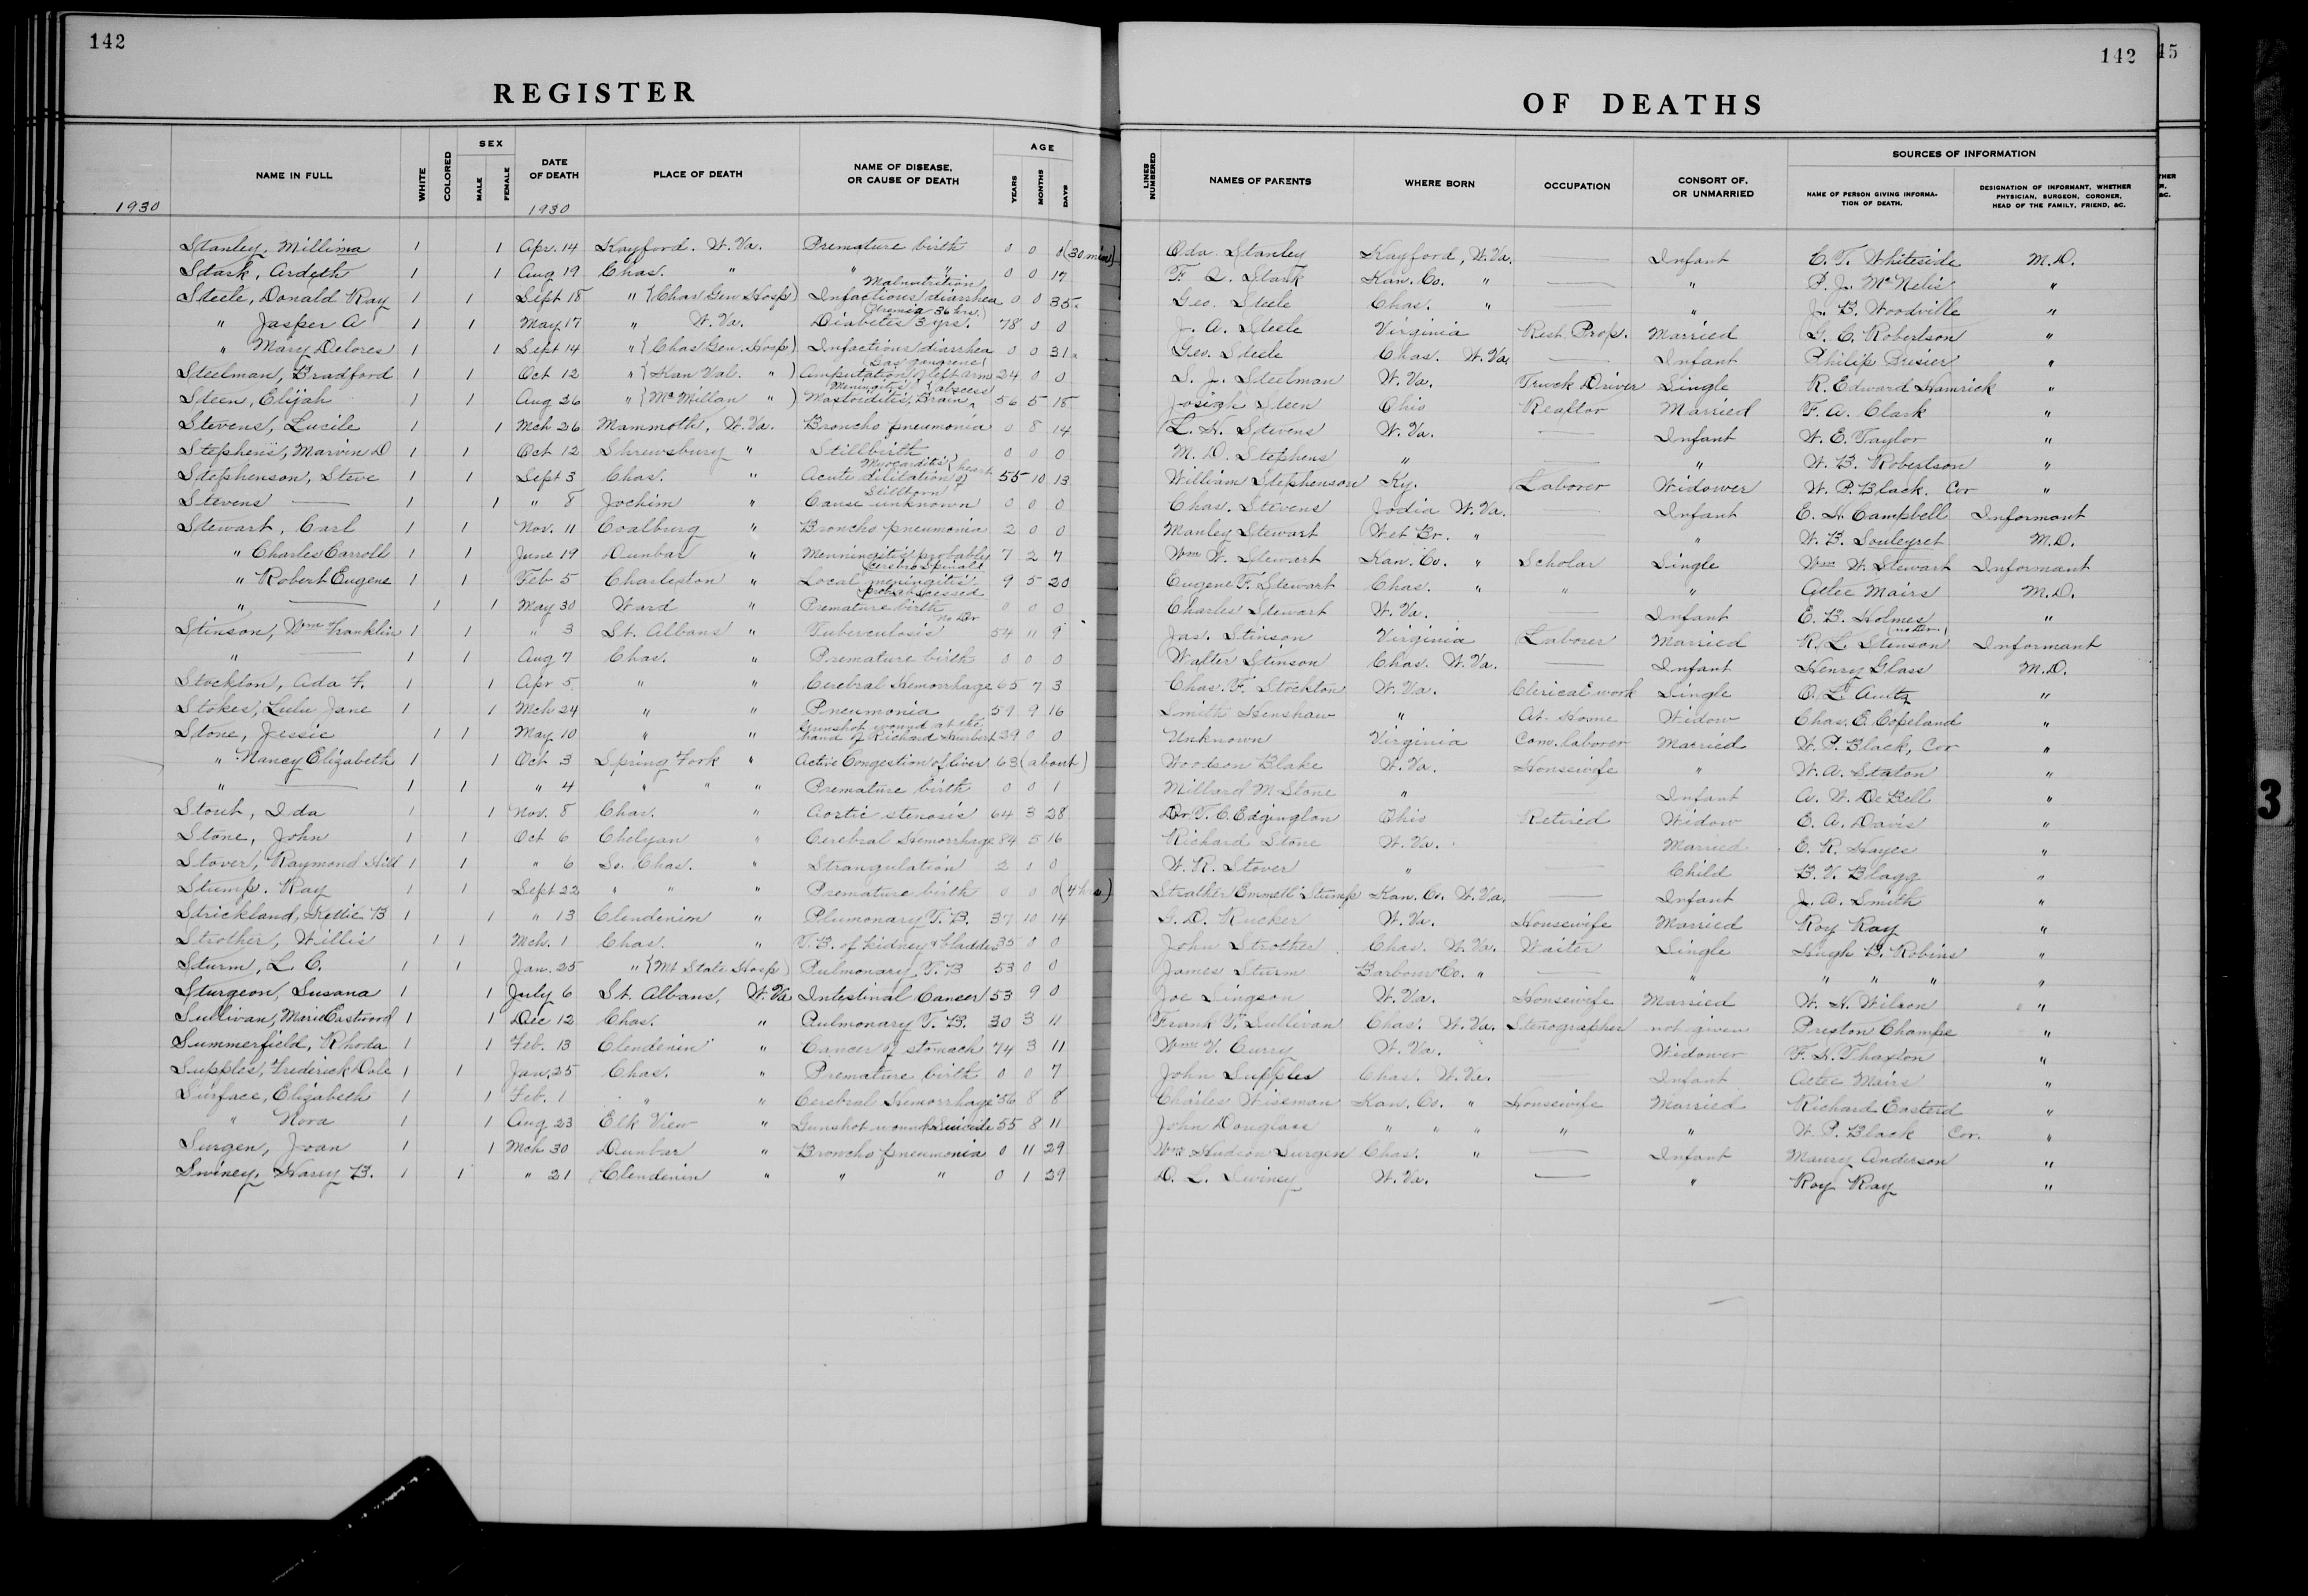 142
REGISTER
1930 NAME IN FULL WHITE COLORED SEX MALE FEMALE DATE OF DEATH 1930 PLACE OF DEATH NAME OF DISEASE, OR CAUSE OF DEATH AGE YEARS MONTHS DAYS
Stanley, Millima 1 1 Apr. 14 Kayford. W. Va. Premature birth 0 0 0 (30 min)
Stark, Ardeth 1 1 Aug 19 Chas. " " " 0 0 17
Steele, Donald Ray 1 1 Sept 18 " (Chas Gen Hosp) Malnutrition Infactious diarrhea 0 0 35
" Jasper A 1 1 May 17 " W. Va. (Uremia 36 hrs.) Diabetes 3 yrs. 78 0 0
" Mary Delores 1 1 Sept 14 " (Chas Gen. Hosp) Infactious diarrhea 0 0 31
Steelman, Bradford 1 1 Oct 12 " (Kan Val. " ) (Gas gangrene) Amputation of left arm 24 0 0
Steen, Elijah 1 1 Aug 26 " (McMillan " ) Meningitis Mastoiditis, Brain abscess 56 5 18
Stevens, Lucile 1 1 Mch 26 Mammoth, W. Va. Broncho pneumonia 0 8 14
Stephens, Marvin D 1 1 Oct 12 Shrewsbury " Stillbirth 0 0 0
Stephenson, Steve 1 1 Sept 3 Chas. " Myocarditis Acute dilitation of heart 55 10 13
Stevens 1 1 " 8 Jochim " Stillborn Cause unknown 0 0 0
Stewart, Carl 1 1 Nov. 11 Coalburg " Broncho pneumonia 2 0 0
" Charles Carroll 1 1 June 19 Dunbar " Menningitis probably (Cerebro Spinal) 7 2 7
" Robert Eugene 1 1 Feb 5 Charleston " Local meningitis 9 5 20
" 1 1 May 30 Ward " Premature birth " 0 0
Stinson, Wm Franklin 1 1 " 3 St. Albans " Tuberculosis no Dr 54 11 9
" 1 1 Aug 7 Chas. " Premature birth 0 0 0
Stockton, Ada F. 1 1 Apr 5 " " Cerebral Hemorrhage 65 7 3
Stokes, Lulu Jane 1 1 Mch 24 " " Pneumonia 59 9 16
Stone, Jessie 1 1 May 10 " " Gunshot wound at the hand of Richard Hurbert 29 0 0
" Nancy Elizabeth 1 1 Oct 3 Spring Fork " Active Congestion of liver 63 (about)
" 1 1 " 4 " " " Premature birth 0 0 1
Stout, Ida 1 1 Nov. 8 Chas. " Aortic stenosis 64 3 28
Stone, John 1 1 Oct 6 Chelyan " Cerebral Hemorrhage 84 5 16
Stover, Raymond Hill 1 1 " 6 So. Chas. " Strangulation 2 1 0
Stump, Ray 1 1 Sept 22 " " " Premature birth 0 0 0 (4 hrs)
Strickland, Kettie B 1 1 " 13 Clendenin " Plumonary T. B. 37 10 14
Strother, Willis 1 1 Mch. 1 Chas. " T. B. of Kidney & bladder 35 0 0
Sturm, L. C. 1 1 Jan. 25 " (Mt State Hosp) Pulmonary T. B 53 0 0
Sturgeon, Susana 1 1 July 6 St. Albans, W. Va Intestinal Cancer 53 9 0
Sullivan, Marie Eastwood 1 1 Dec 12 Chas. " Pulmonary T. B. 30 3 11
Summerfield, Rhoda 1 1 Feb. 13 Clendenin " Cancer of stomach 74 3 11
Supples, Frederick Dale 1 1 Jan. 25 Chas. " Premature birth 0 0 7
Surface, Elizabeth 1 1 Feb. 1 " " Cerebral Hemorrhage 56 8 8
" Nora 1 1 Aug 23 Elk View " Gunshot wound, Suicide 55 8 11
Surgen, Joan 1 1 Mch 30 Dunbar " Broncho pneumonia 0 11 29
Swiney, Harry B. 1 1 " 21 Clendenin " " " 0 1 29
142
45
OF DEATHS
LINES NUMBERED NAMES OF PARENTS WHERE BORN OCCUPATION CONSORT OF, OR UNMARRIED SOURCES OF INFORMATION NAME OF PERSON GIVING INFORMATION OF DEATH. DESIGNATION OF INFORMANT, WHETHER PHYSICIAN, SURGEON, CORONER, HEAD OF THE FAMILY, FRIEND, &C.
Oda Stanley Kayford, W. Va. Infant C. T. Whiteside M.D.
F. S. Stark Kan. Co. " " P. J. McNelis "
Geo. Steele Chas. " " J. B. Woodville "
J. A. Steele Virginia Rest. Prop. Married G. C. Robertson "
Geo. Steele Chas. W. Va. Infant Philip Presier "
S. J. Steelman W. Va. Truck Driver Single R. Edward Hamrick "
Josigh Steen Ohio Realtor Married F. A. Clark "
L. H. Stevens W. Va. Infant W. E. Taylor "
M. D. Stephens " " W. B. Robertson "
William Stephenson Ky. Laborer Widower W. P. Black. Cor "
Chas. Stevens Jodia W. Va. Infant E. H. Campbell Informant
Manley Stewart Wet Br. " " W. B. Souleyret M.D.
Wm W. Stewart Kan. Co. " Scholar Single Wm W. Stewart Informant
Eugene F. Stewart Chas. " " " Attee Mairs M.D.
Charles Stewart W. Va. Infant E. B. Holmes "
Jas. Stinson Virginia Laborer Married R. L. Stinson Informant
Walter Stinson Chas. W. Va. Infant Henry Glass M.D.
Chas. F. Stockton W. Va. Clerical work Single O. L. Aultz "
Smith Henshaw " At Home Widow Chas. E. Copeland "
Unknown Virginia Com. laborer Married W. P. Black, Cor "
Woodson Blake W. Va. Housewife " W. A. Staton "
Millard M Stone " Infant A. W. De Bell "
Dr. T. C. Edgington Ohio Retired Widow E. A. Davis "
Richard Stone W. Va. Married E. R. Hayes "
W. R. Stover " Child B. V. Blagg "
Strather Emmett Stump Kan. Co. W. Va. Infant J. A. Smith "
G. D. Rucker W. Va. Housewife Married Roy Ray "
John Strother Chas. W. Va. Waiter Single Hugh B. Robins "
James Sturm Barbour Co. " " " " " "
Joe Singson W. Va. Housewife Married W. H. Wilson "
Frank T. Sullivan Chas. W. Va. Stenographer not given Preston Champe "
Wm V. Curry W. Va. Widower F. H. Thaxton "
John Supples Chas. W. Va. Infant Attee Mairs "
Charles Wiseman Kan. Co. " Housewife Married Richard Easterd "
John Douglass " " " " " W. P. Black Cor. "
Wm Hudson Surgen Chas. " Infant Maury Anderson "
D. L. Swiney W. Va. " Roy Ray "
3